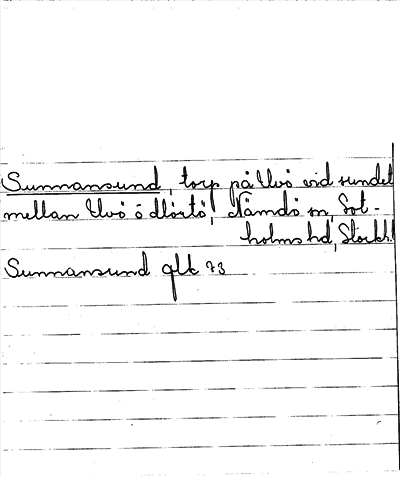 Sunnansund, torp på Uvö vid sundet
mellan Uvö o Nämdö sn, Sot-
holms hd, Stockh.
Sunnansund glk 73